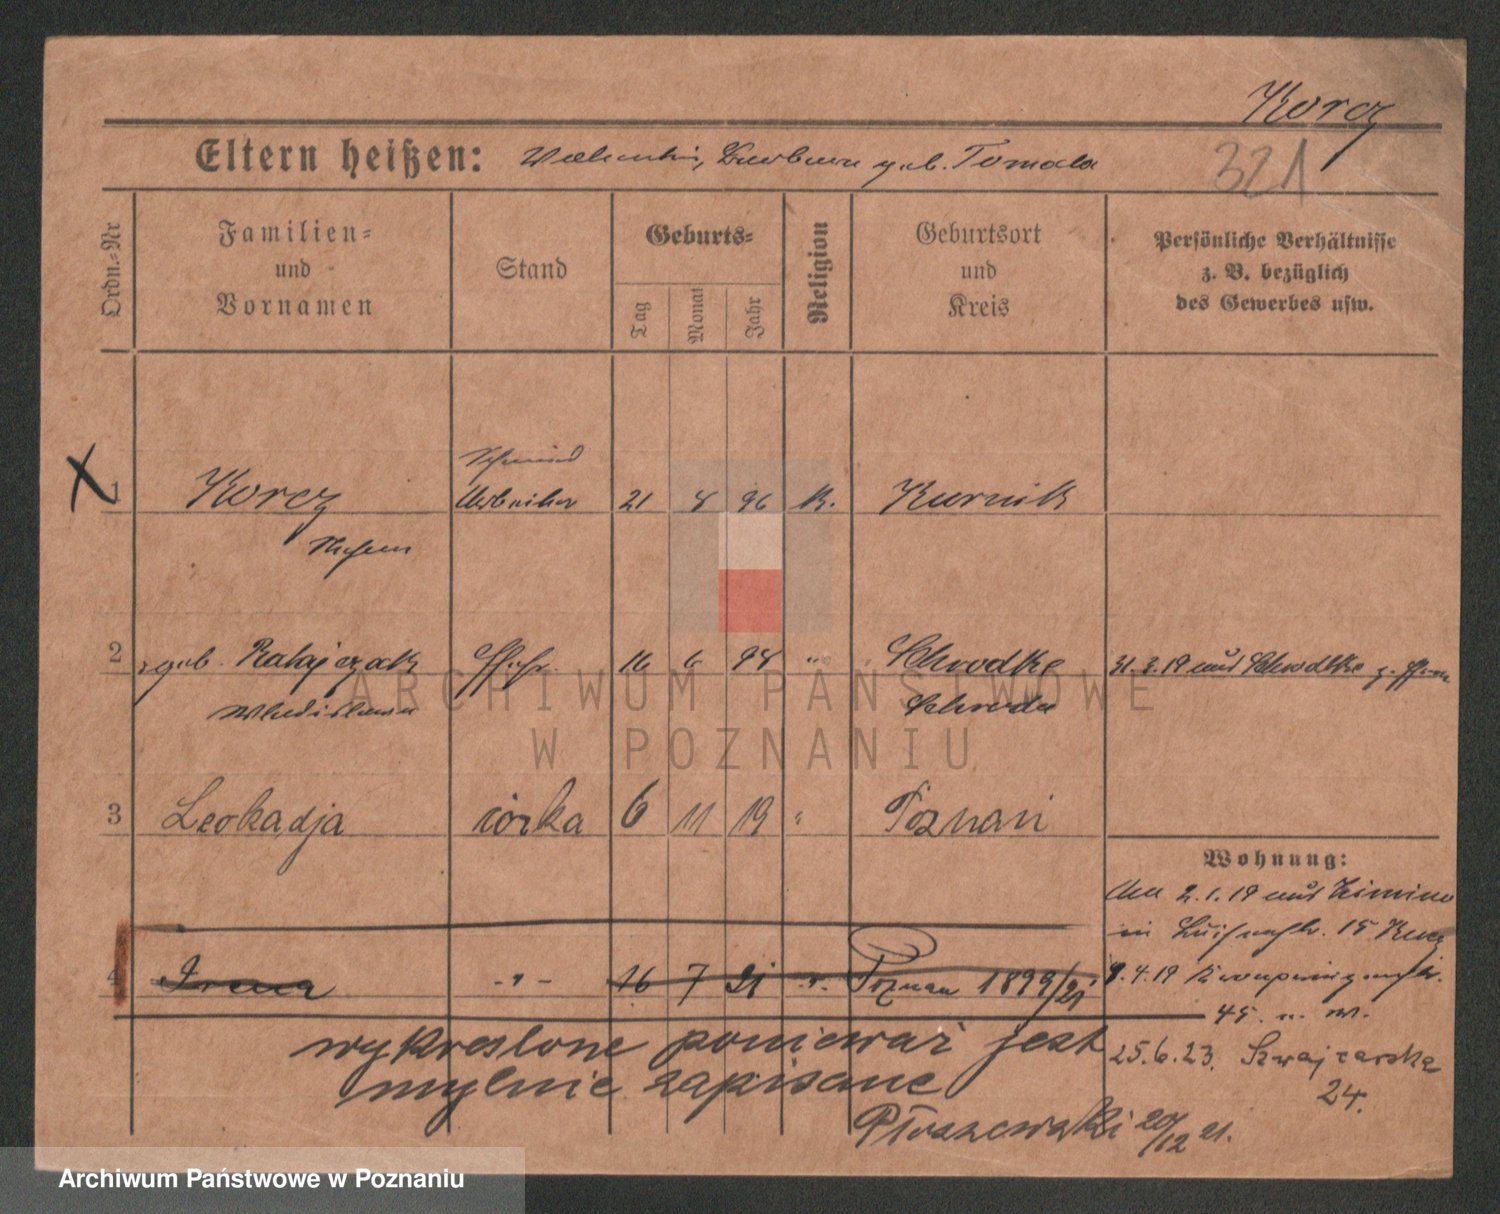 Korcz
321
Eltern heißen: Valentin, Barbara geb. Tomala
Ordn.-Nr
Familien-
und
Vornamen
Stand
Geburts-
Tag
Monat
Jahr
Religion
Geburtsort
und
Kreis
Persönliche Verhältnisse
z. B. bezüglich
des Gewerbes usw.
Schmied
1 Korcz Arbeiter 21 8 96 K. Kurnik
Stefan
2 geb. Ratajczak Ehefr. 16 6 98 " Schrodke 31.3.19 aus Schrodtke z. Ehem
Wladislawa Schroda
3 Leokadja córka 6 11 19 " Poznań
Wohnung:
Am 2.1.19 aus Zimino
in Luisenstr. 15 Korcz
4 Irena - " - 16 7 21 " Poznan 1899/21
9.4.19 Kronprinzenstr.
45. n. M.
wykreslone poniewaź jest
mylnie zapisane
25.6.23. Szwajcarska
24.
Płuszewski 20/12 21.
ARCHIWUM PAŃSTWOWE
W POZNANIU
Archiwum Państwowe w Poznaniu